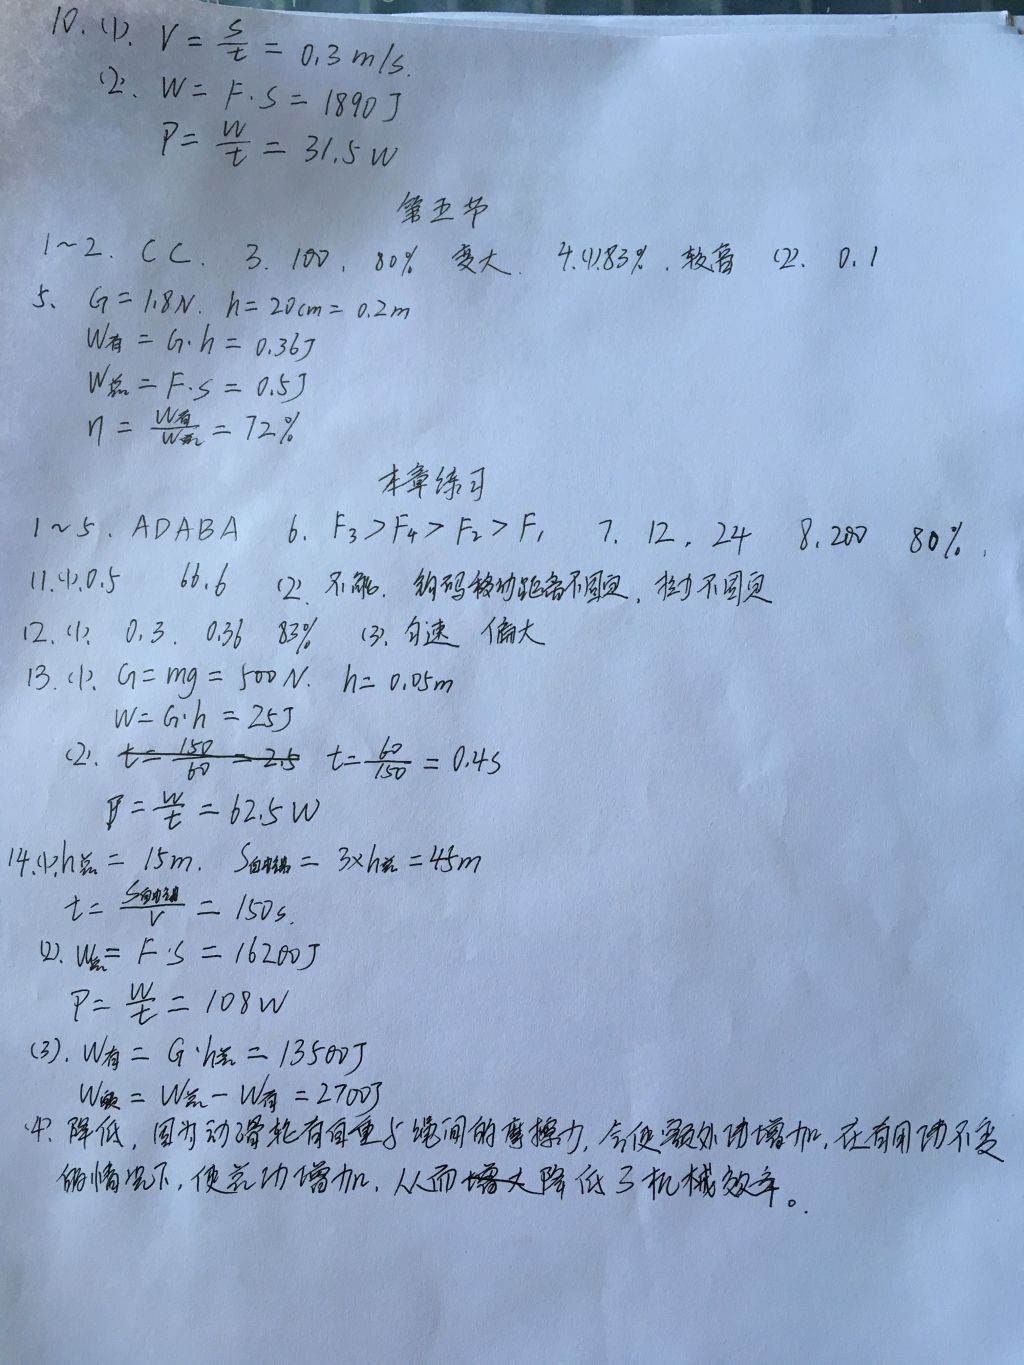 10. (1). V = s/t = 0.3 m/s.
(2). W = F·S = 1890J
P = W/t = 31.5W
第五节
1~2. CC. 3. 100. 80% 变大. 4.(1).83%. 较高 (2). 0.1
5. G = 1.8N. h = 20cm = 0.2m
W有 = G·h = 0.36J
W总 = F·S = 0.5J
η = W有/W总 = 72%
本章练习
1~5. ADABA 6. F₃>F₄>F₂>F₁ 7. 12. 24 8. 200 80%.
11.(1).0.5 66.6 (2). 不能. 钩码移动距离不固定, 拉力不固定
12.(1). 0.3. 0.36 83% (3). 匀速 偏大
13.(1). G = mg = 500N. h = 0.05m
W = G·h = 25J
(2). t = 150/60 = 2.5 t = 60/150 = 0.4s
P = W/t = 62.5W
14.(1).h总 = 15m. S自由端 = 3×h总 = 45m
t = S自由端/V = 150s.
(2). W总 = F·S = 16200J
P = W/t = 108W
(3). W有 = G·h总 = 13500J
W额 = W总 - W有 = 2700J
(4). 降低, 因为动滑轮有自重与绳间的摩擦力, 会使额外功增加, 在有用功不变
的情况下, 使总功增加, 从而增大降低了机械效率。